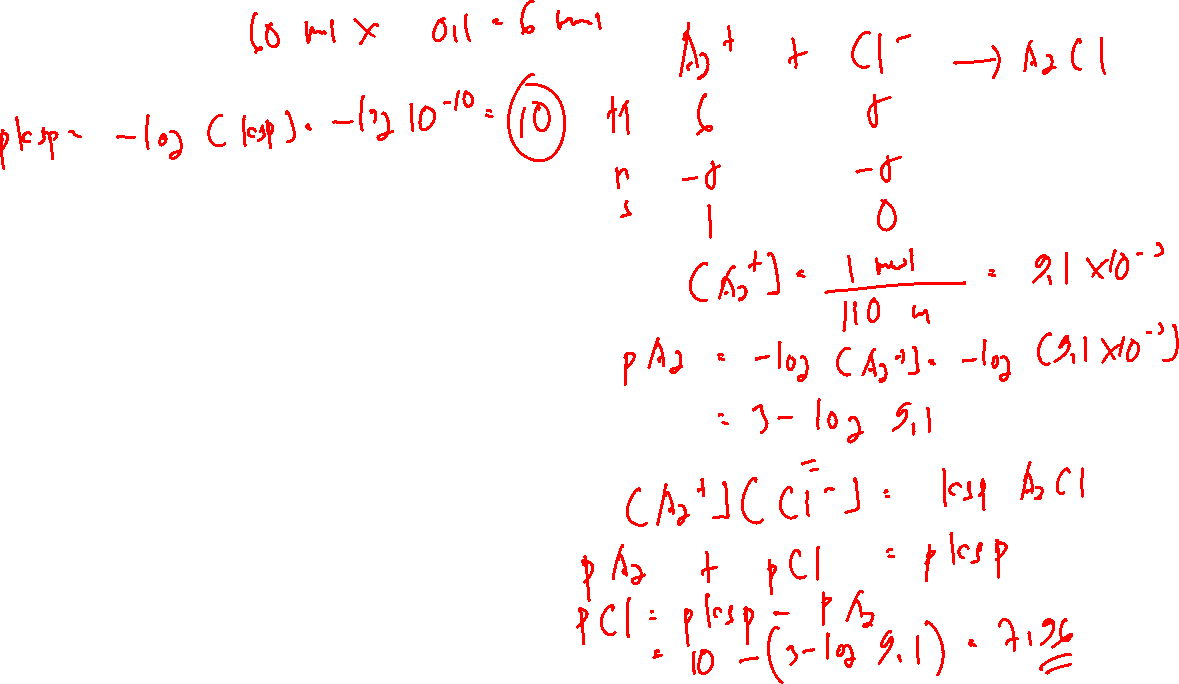 60 ml x 0,1 = 6 mmol
Ag+ + Cl- → AgCl
pksp = -log (ksp) = -log 10-10 = 10
M 6 5
r -5 -5
s 1 0
(Ag+] = 1 mmol / 110 m = 9,1 x10-3
pAg = -log (Ag+] = -log (9,1 x10-3)
= 3 - log 9,1
(Ag+] (Cl-] = ksp AgCl
pAg + pCl = pksp
pCl = pksp - pAg
= 10 - (3-log 9,1) = 7,96